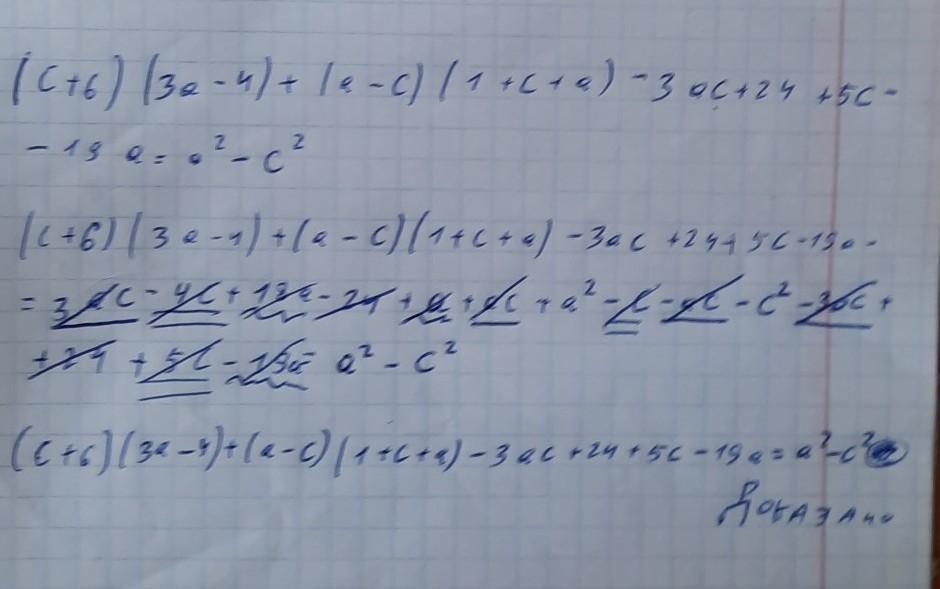 (c+6)(3a-4)+(a-c)(1+c+a)-3ac+24+5c-
-19a=a²-c²
(c+6)(3a-4)+(a-c)(1+c+a)-3ac+24+5c-19a-
=3ac-4c+18a-24+a+ac+a²-c-ac-c²-3ac+
+24+5c-19a=a²-c²
(c+6)(3a-4)+(a-c)(1+c+a)-3ac+24+5c-19a=a²-c²
Доказано